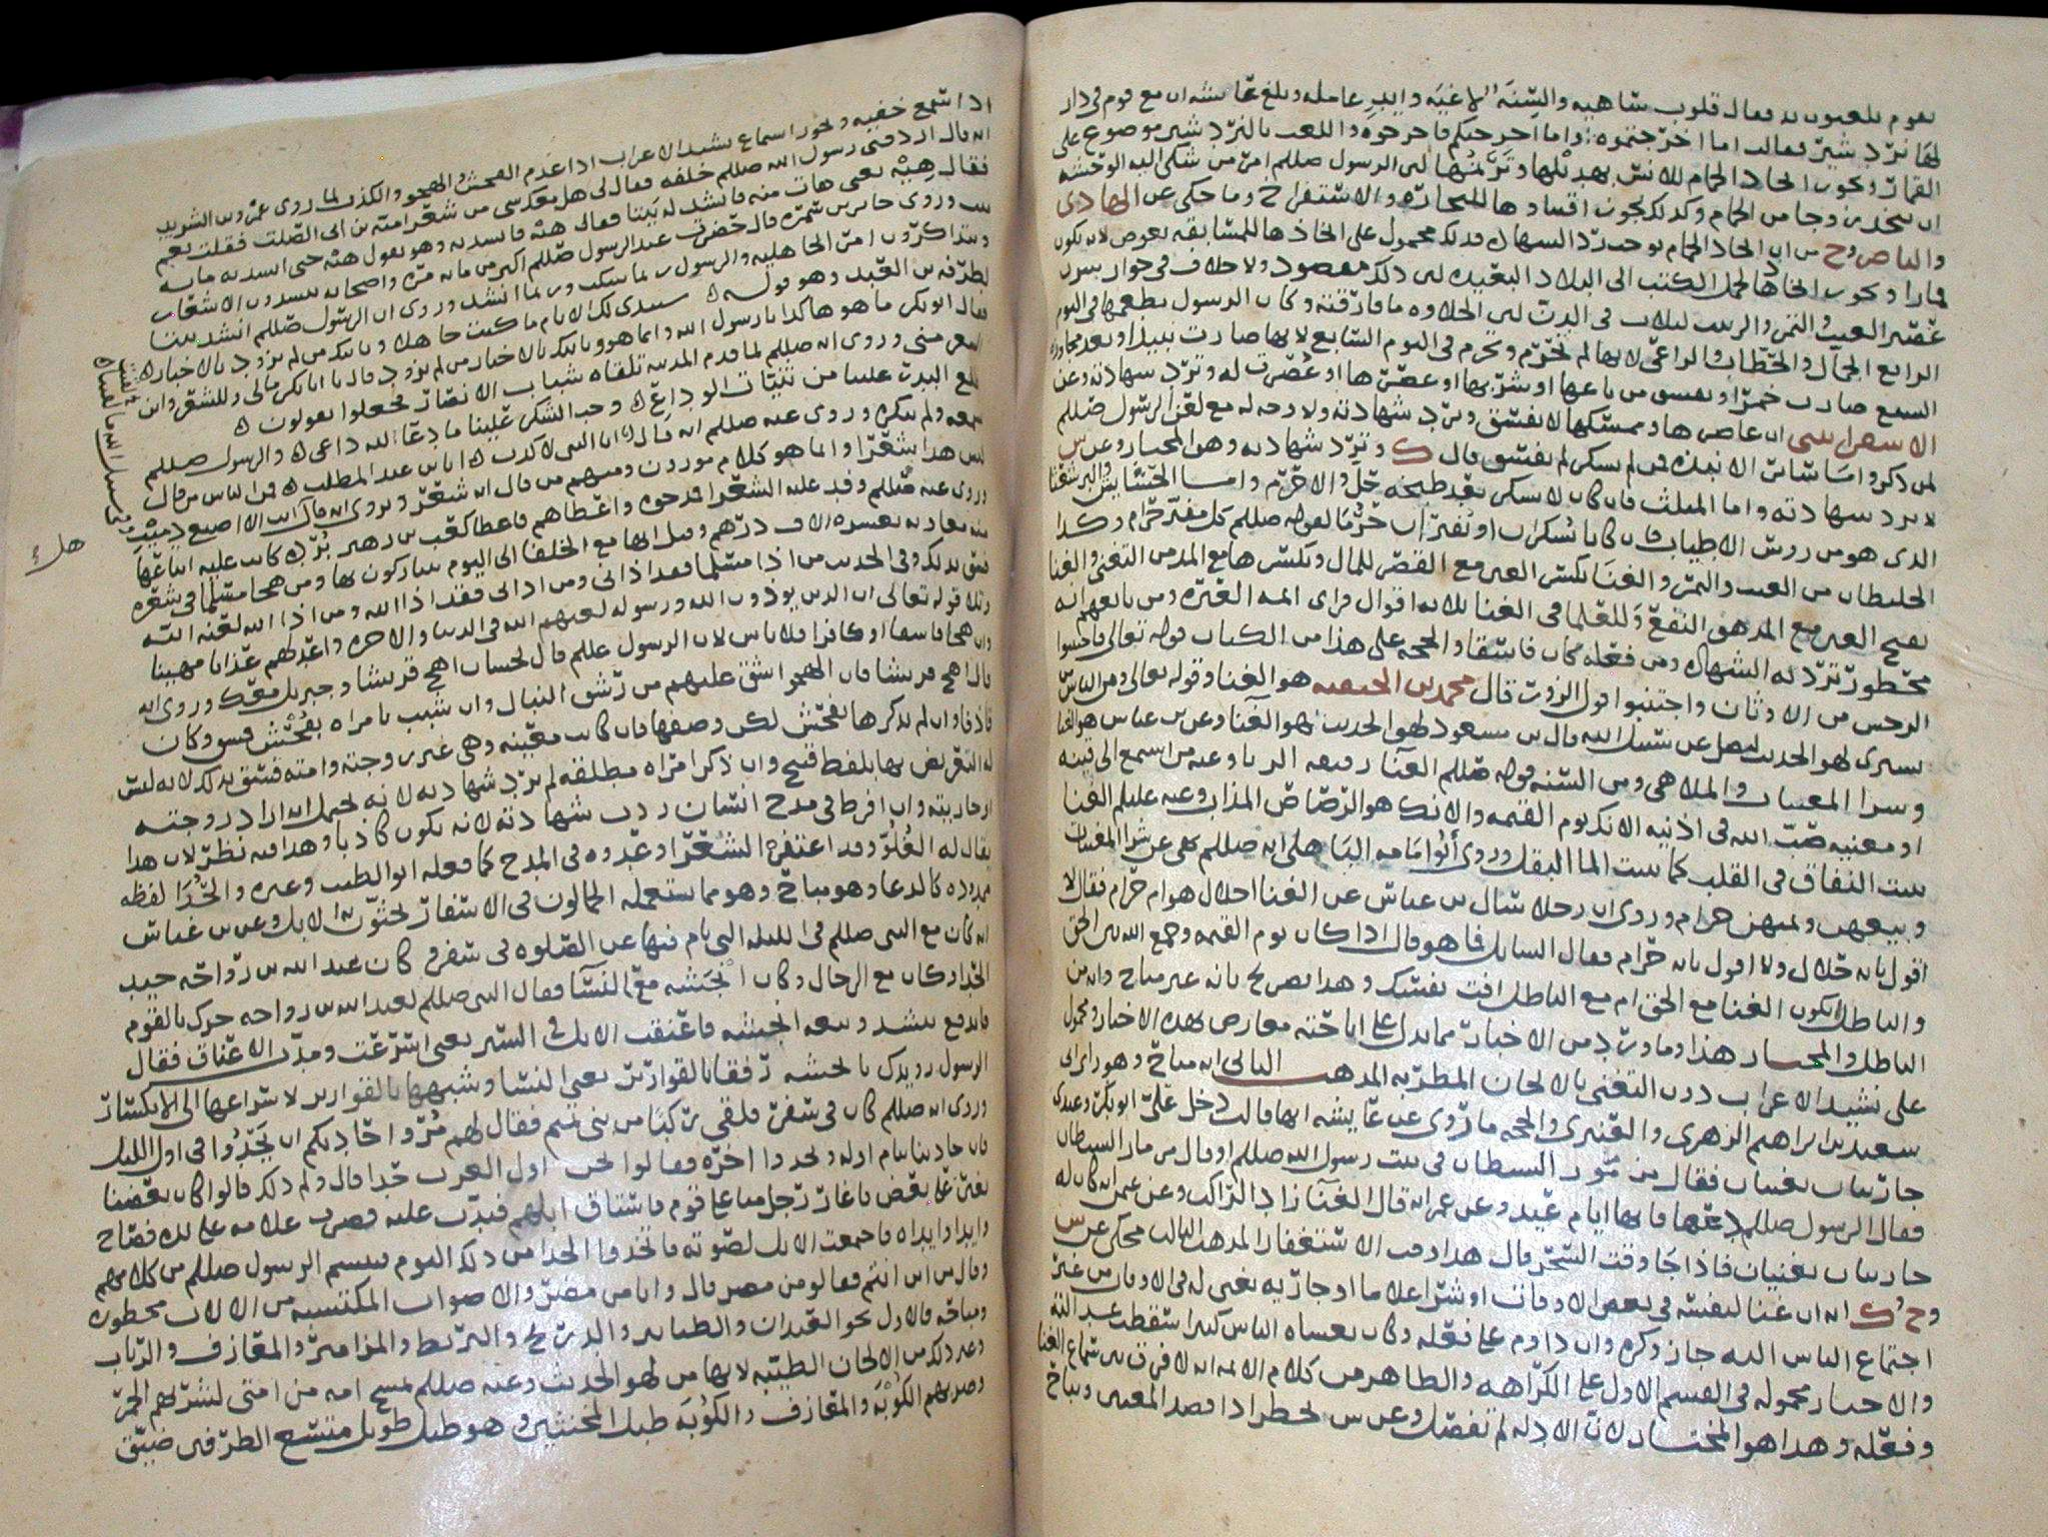 بقوم يلعبون به فقال قلوب ساهيه والسنة لاغيه وايدٍ عامله وبلغ عائشه ان مع قوم في دار
لها نردشير فقالت اما اخرجتموه واما اخرجتكم فاخرجوه واللعب بالنردشير موضوع على
القمار ويجوز اتخاذ الحمام للانس بهديلها وترنمها لان الرسول صللم امر من شكى اليه الوحشه
ان يتخذ زوجا من الحمام وكذلك يجوز اقتناوها للتجاره والاستفراخ وما حكي عن الهادي
والناصر وح من ان اتخاذ الحمام يوجب رد الشهاده فذلك محمول على اتخاذها للمسابقه بعوض لانه يكون
قمارا ويجوز اتخاذها لحمل الكتب الى البلاد البعيده لان ذلك مقصود ولا خلاف في جواز شرب
عصير العنب والتمر والزبيب ثلاث في الدن لان الحلاوه ما فارقته وكان الرسول يطعمها في اليوم
الرابع الجمال والحطاب والراعي لانها لم تحرم وتحرم في اليوم السابع لانها صارت نبيذا وبعد مجاوزه
السبع صارت خمرا ويفسق من باعها او شربها او عصرها او عصرت له وترد شهادته وعن
الاسفراييني ان عاصرها وممسكها لا يفسق وترد شهادته ولا وجه له مع لعن الرسول صللم
لمن ذكر واما شارب الانبذه فمن لم يسكر لم يفسق قال ك وترد شهادته وهو المختار وعن س
لا ترد شهادته واما المثلث فان كان لا يسكر بعد طبخه حل والا حرم واما الحشايش والبرشعثا
الذي هو من روث الاطياب فان كانا يسكران او يفتران حرما لقوله صللم كل مفتر حرام وكذا
الخليطان من العنب والتمر والغنا بكسر الغين مع القصر للمال وبكسرها مع المد من التغني والغنا
بفتح الغين مع المد هو النفع وللعلما في الغنا ثلاثه اقوال فراي ائمه العتره ومن تابعهم انه
محظور ترد به الشهاده ومن فعله كان فاسقا والحجه على هذا من الكتاب قوله تعالى فاجتنبوا
الرجس من الاوثان واجتنبوا قول الزور قال محمد بن الحنفيه هو الغنا وقوله تعالى ومن الناس من
يشتري لهو الحديث ليضل عن سبيل الله قال بن مسعود لهو الحديث لهو الغنا وعن بن عباس هو الغنا
وشرا المغنيات والملاهي ومن السنه قوله صللم الغنا رقيه الزنا وعنه من اسمع الى قينه
او مغنيه صب الله في اذنيه الانك يوم القيمه والانك هو الرصاص المذاب وعنه عليلم الغنا
ينبت النفاق في القلب كما ينبت الما البقل وروى ابو امامه الباهلي انه صللم نهى عن شرا المغنيات
وبيعهن وثمنهن حرام وروي ان رجلا سال بن عباس عن الغنا احلال هو ام حرام فقال لا
اقول بانه حلال ولا اقول بانه حرام فقال السايل فما هو قال اذا كان يوم القيمه وجمع الله بين الحق
والباطل ايكون الغنا مع الحق ام مع الباطل افت نفسك وهذا تصريح بانه غير مباح وانه من
الباطل والمختار هذا وما ورد من الاخبار مما يدل على اباحته معارض بهذه الاخبار ومحمول
على نشيد الاعراب دون التغني بالالحان المطربه المذهب الثاني انه مباح وهو راي
سعيد بن ابراهيم الزهري والعنبري والحجه ما روي عن عايشه انها قالت دخل علي ابو بكر وعندي
جاريتان يغنيان فقال مزمور الشيطان في بيت رسول الله صللم او قال مزمار الشيطان
فقال الرسول صللم دعها فانها ايام عيد وعن عمر انه قال الغنا زاد الراكب وعن عثمن انه كان له
جاريتان يغنيان فاذا جا وقت السحر قال هذا وقت الاستغفار المذهب الثالث محكي عن س
وح وك انه ان غنا لنفسه في بعض الاوقات او شرا غلاما او جاريه يغني له في الاوقات من غير
اجتماع الناس اليه جاز وكره وان داوم على فعله وكان يغشاه الناس كثيرا سقطت عدالته
والاخبار محموله في القسم الاول على الكراهه والظاهر من كلام الائمه انه لا فرق بين سماع الغنا
وفعله وهذا هو المختار لان الادله لم تفصل وعن س يحظر اذا قصد المغني ويباح
اذا سمع خفيه ويجوز استماع نشيد الاعراب اذا عدم الفحش والهجو والكذب لما روى عمرو بن الشريد
انه قال اردفني رسول الله صللم خلفه فقال لي هل معك شي من شعر اميه بن ابي الصلت فقلت نعم
فقال هيه يعني هات منه فانشدته بيتا فقال هيه فانشدته وهو يقول هيه حتى انشدته مايه
بيت وروى جابر بن سمره قال حضرت عند الرسول صللم اكثر من مايه مره واصحابه ينشدون الاشعار
ويتذاكرون امر الجاهليه والرسول ربما سكت وربما انشد وروي ان الرسول صللم انشد بيتا
لطرفه بن العبد وهو قوله ستبدي لك الايام ما كنت جاهلا وياتيك من لم تزود بالاخبار
فقال ابو بكر ما هو هكذا يا رسول الله وانما هو وياتيك بالاخبار من لم تزود قال يا ابا بكر مالي وللشعر واين
الشعر مني وروي انه صللم لما قدم المدينه تلقاه شباب الانصار فجعلوا يقولون
طلع البدر علينا من ثنيات الوداع وجب الشكر علينا ما دعا لله داعي والرسول صللم
سمعه ولم ينكره وروي عنه صللم انه قال انا النبي لا كذب انا بن عبد المطلب فمن الناس من قال
ليس هذا شعرا وانما هو كلام موزون ومنهم من قال انه شعر وروي انه قال هل انت الا اصبع دميت
وفي سبيل الله ما لقيت
وروي عنه صللم وفد عليه الشعرا فمدحوه واعطاهم فاعطا كعب بن زهير برده كانت عليه ابتاعها
منه معاويه بعشره الاف درهم وقيل انها مع الخلفا الى اليوم يتباركون بها ومن هجا مسلما في شعره
فسق بذلك وفي الحديث من اذا مسلما فقد اذاني ومن اذاني فقد اذا الله ومن اذا الله لعنه الله
وتلا قوله تعالى ان الذين يوذون الله ورسوله لعنهم الله في الدنيا والاخره واعد لهم عذابا مهينا
وان هجا فاسقا او كافرا فلا باس لان الرسول عللم قال لحسان اهج قريشا وجبريل معك وروي انه
قال اهج قريشا فان الهجو اشق عليهم من رشق النبال وان شبب بامراه بفحش فسق وكان
قاذفا وان لم يذكرها بفحش لكن وصفها فان كانت معينه وهي غير زوجته وامته فسق بذلك لانه ليس
له التعريض بها بلفظ قبيح وان ذكر امراه مطلقه لم ترد شهادته لانه يحمل انه اراد زوجته
او جاريته وان افرط في مدح انسان ردت شهادته لانه يكون كاذبا وهذا فيه نظر لان هذا
يقال له الغلو وقد اغتفره الشعرا وعدوه في المدح كما فعله ابو الطيب وغيره والحدا لفظه
ممدوده كالدعا وهو مباح وهو مما يستعمله الجمالون في الاسفار لحثون به الابل وعن بن عباس
انه كان مع النبي صللم في الليله التي نام فيها عن الصلوه في سفر وكان عبد الله بن رواحه جيد
الحدا وكان مع الرجال وكان انجشه مع النسا فقال النبي صللم لعبد الله بن رواحه حرك بالقوم
فاندفع ينشد وتبعه انجشه فاعنقت الابل في السير يعني اسرعت ومدت الاعناق فقال
الرسول رويدك يا انجشه رفقا بالقوارير يعني النسا وشبهها بالقوارير لاسراعها الى الانكسار
وروي انه صللم كان في سفر فلقي ركبا من بني تميم فقال لهم مروا حاديكم ان يحدوا في اول الليل
فان حادينا ينام اوله ويحدوا اخره فقالوا نحن اول العرب حدا قال ولم ذلك قالوا كان بعضنا
يغير على بعض فاغار رجل منا على قوم فاستاق ابلهم فندت عليه فضرب غلامه على يده فصاح
وايداه وايداه فاجتمعت الابل لصوته فاتخذوا الحدا من ذلك اليوم فتبسم الرسول صللم من كلامهم
وقال من اين انتم فقالو من مضر قال وانا من مضر والاصوات المكتسبه من الالات محظوره
ومباحه فالاول نحو العيدان والطنابير والدريج والبربط والمزامير والمعازف والرباب
وغير ذلك من الالحان الطيبه لانها من لهو الحديث وعنه صللم تمسخ امه من امتي لشربهم الخمر
وضربهم الكوبه والمعازف والكوبه طبل المخنثين وهو طبل طويل متسع الطرفين ضيق